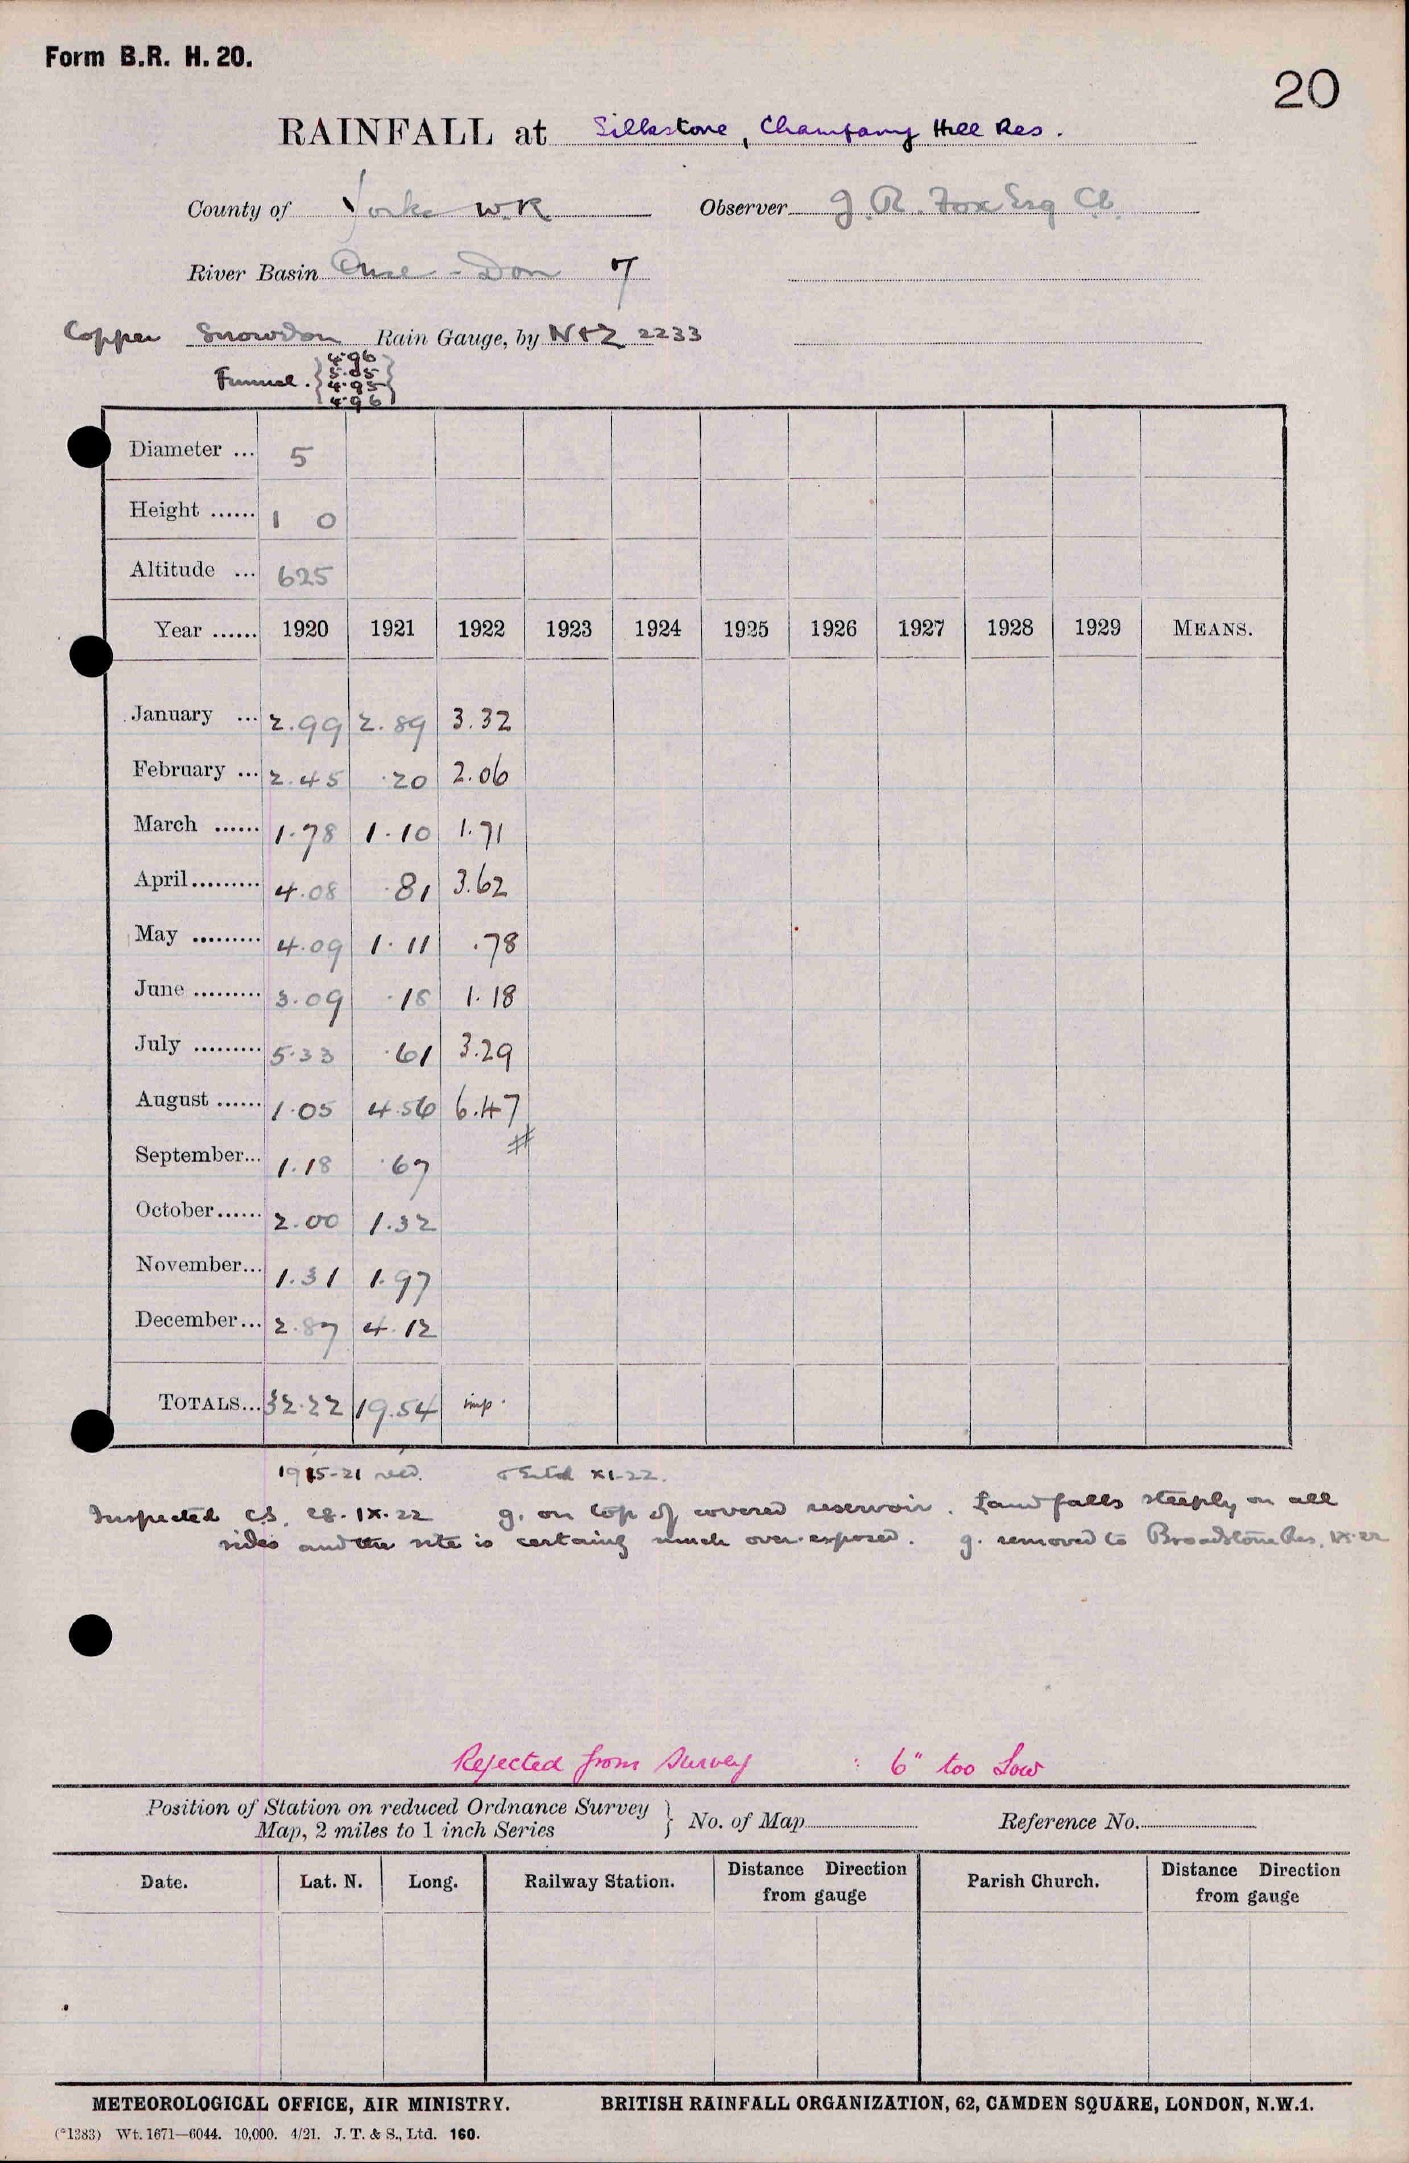 Form B.R. H. 20.
20
RAINFALL at Silkstone, Champany Hill Res.
County of Yorks W.R. Observer J. R. Fox Esq C.E.
River Basin Ouse - Don 7
Copper Snowdon Rain Gauge, by N+Z 2233
Funnel. { 4.96 5.05 4.95 4.96 }
Diameter ... 5
Height ...... 1 0
Altitude ... 625
Year ...... 1920 1921 1922 1923 1924 1925 1926 1927 1928 1929 MEANS.
January ... 2.99 2.89 3.32
February ... 2.45 .20 2.06
March ...... 1.78 1.10 1.71
April......... 4.08 .81 3.62
May ......... 4.09 1.11 .78
June ......... 3.09 .18 1.18
July ......... 5.33 .61 3.29
August ...... 1.05 4.56 6.47
#
September... 1.18 .67
October...... 2.00 1.32
November... 1.31 1.97
December... 2.87 4.12
TOTALS... 32.22 19.54 imp.
1915-21 XI-22.
Inspected C.S. 28.IX.22 g. on top of covered reservoir. Land falls steeply on all
sides and the site is certainly much over exposed. g. removed to Broadstone Res. IX.22
Rejected from Survey : 6" too Low
Position of Station on reduced Ordnance Survey
Map, 2 miles to 1 inch Series } No. of Map Reference No.
Date. Lat. N. Long. Railway Station. Distance Direction from gauge Parish Church. Distance Direction from gauge
METEOROLOGICAL OFFICE, AIR MINISTRY. BRITISH RAINFALL ORGANIZATION, 62, CAMDEN SQUARE, LONDON, N.W.1.
(*1383) Wt. 1671—6044. 10,000. 4/21. J. T. & S., Ltd. 160.